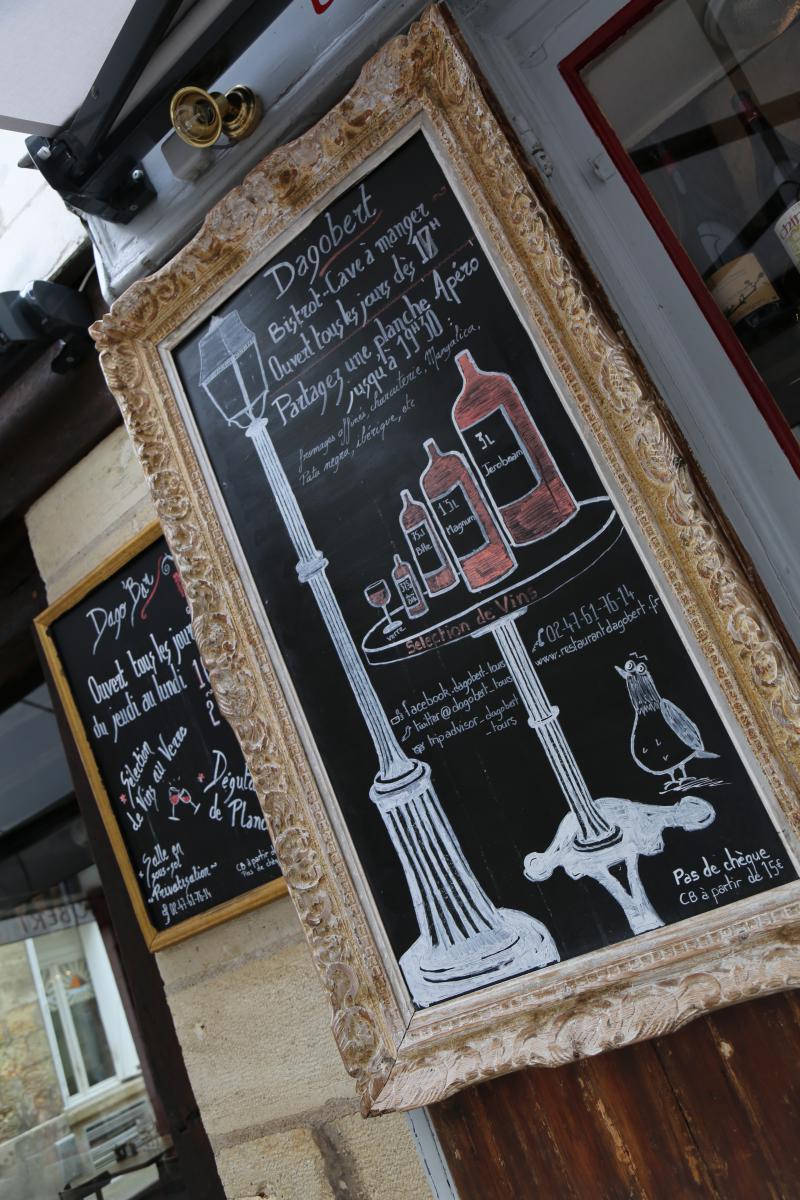 Dagobert
Bistrot-Cave à manger
Ouvert tous les jours dès 17H
Partagez une planche Apéro
jusqu'à 19H30 :
fromages affinés, charcuterie, Mangalica,
Pata negra, ibérique, etc
3L
Jeroboam
1'5L
Magnum
75cl
Btlle
37'5
verre
Selection de Vins
02-47-61-76-14
www.restaurantdagobert.fr
facebook_dagobert_tours
twitter@dagobert_tours
tripadvisor_dagobert
_tours
Pas de chèque
CB à partir de 15€
Dago'Bar
Ouvert tous les jours
du jeudi au lundi
Sélection
de Vins au Verre
Dégust
de Planc
Salle en
sous-sol
"Privatisation"
02-47-61-76-14
CB à partir
Pas de chè